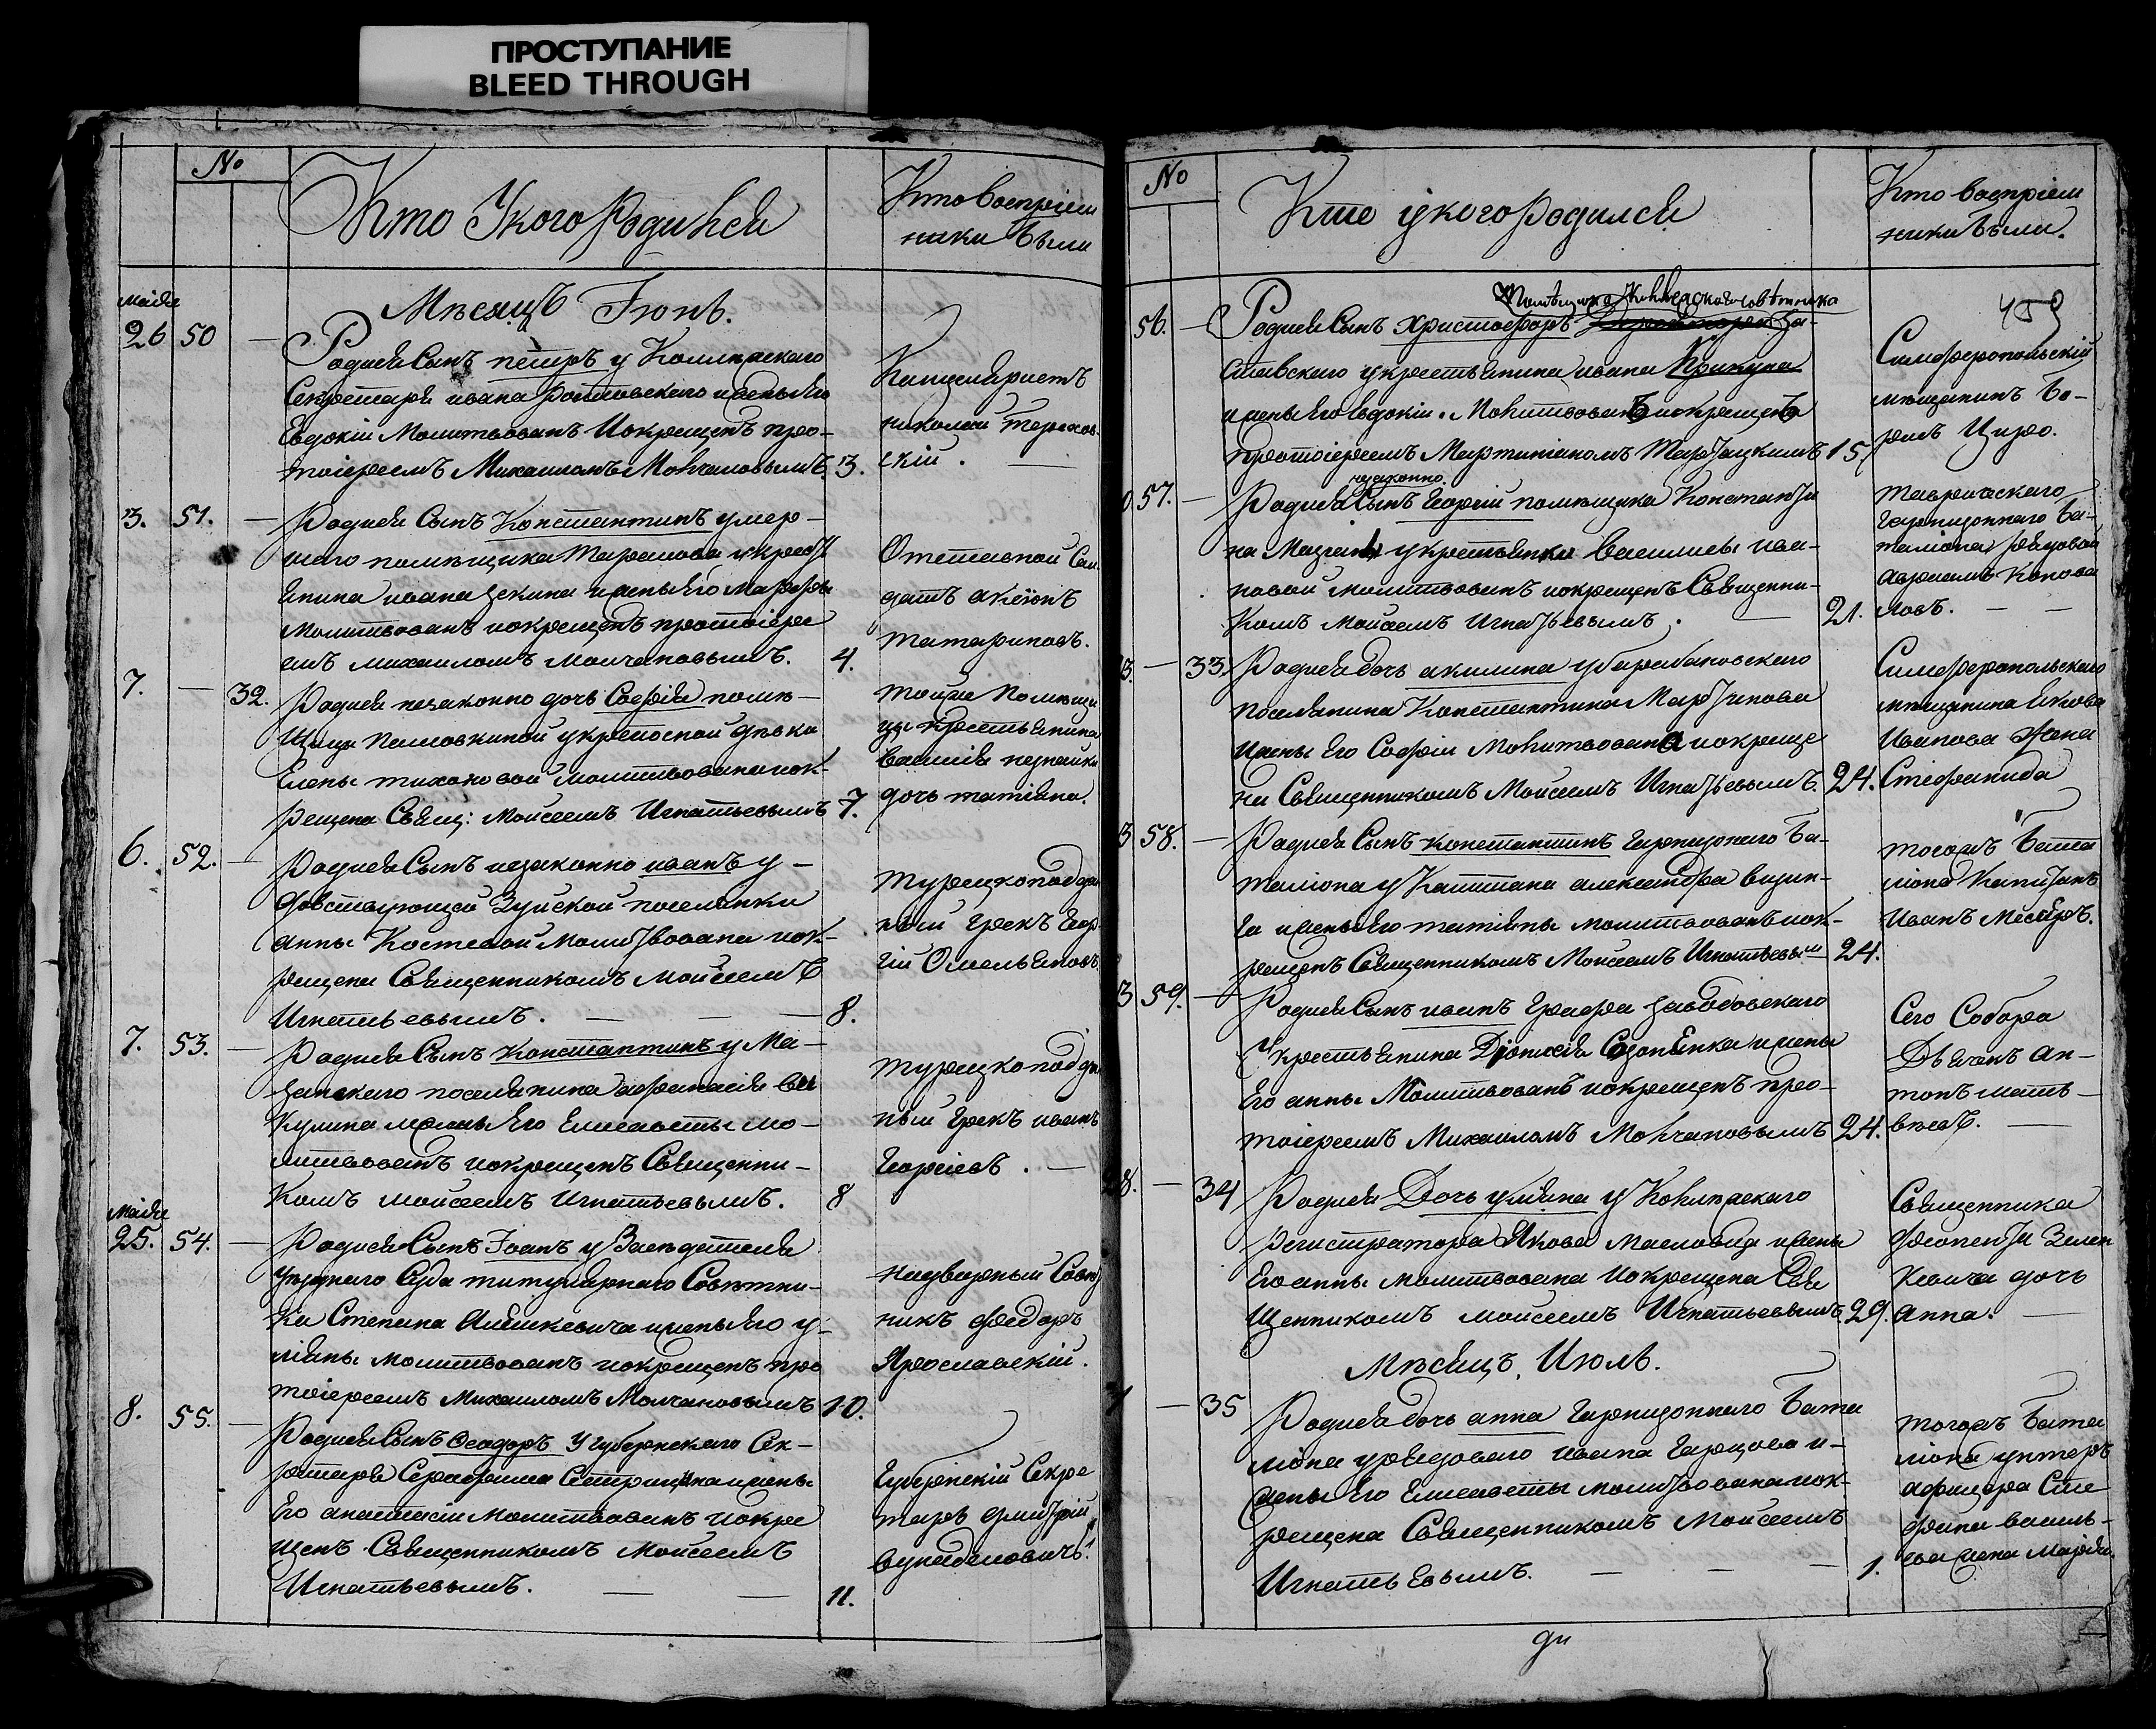 ПРОСТУПАНИЕ
BLEED THROUGH
№
Кто Укого Родился
Кто воспріем
ники были
Мѣсяцъ Іюнь.
Майя
26 50 —
Родился Сынъ петръ у Коллежскаго
Секретаря ивана Ротовского и жены Его
Евдокіи Молитвованъ И окрещенъ про-
тоіереемъ Михаиломъ Молчановымъ. 3.
Канцеляристъ
николай Терехов-
скій. —
3. 51. —
Родился Сынъ Константинъ умер-
шаго помѣщика Тарасова у крестья
янина ивана и жены Его Марфы
Молитвованъ и окрещенъ протоіере
емъ михаиломъ молчановымъ. 4.
Отставной Сол
датъ
татариновъ.
7. — 32.
Родися незаконно дочь Софія помѣ-
щицы у крепосной дѣвки
Елены тихоновой молитвована и ок-
рещена Свящ: Моисеемъ Игнатьевымъ 7.
тойже Помѣщи
цы крестьянина
василія
дочь татіяна.
6. 52. —
Родися Сынъ незаконно иванъ у —
довствующей Зуйской поселянки
анны Костевой Молитвована и ок-
рещена Священникомъ Моисеемъ
Игнатьевымъ. — — — 8.
турецкоподдан
ный Грекъ Геор
гій Омельяновъ
7. 53. —
Родися Сынъ Константинъ у Ма-
занскаго поселянина афанасія ва
кулина и жены Его Елисаветы мо-
литвованъ и окрещенъ Священни-
комъ моисеемъ Игнатьевымъ. 8
турецкоподдан
ный Грекъ иванъ
Георгіевъ. —
Майя
25. 54. —
Родися Сынъ Іоанъ у Засѣдателя
Уѣзднаго Суда титулярнаго Совѣтни-
ка Степана и жены Его у-
ліяны молитвованъ и окрещенъ про
тоіереемъ Михаиломъ Молчановымъ 10.
надворный Совѣт
никъ Федоръ
Ярославскій.
8. 55. —
Родися Сынъ Феодоръ У губернскаго Сек-
ретаря Серафима и жены
Его анастасіи Молитвованъ и окре
щенъ Священникомъ Моисеемъ
Игнатьевымъ. — — 11.
Губернскій Секре
тарь дмитрій
№
Кто у кого Родился
Кто воспріем
ники были.
459
56. —
помѣщика Коллежскаго совѣтника
Родися Сынъ Христофоръ За-
ставскаго у крестьянина ивана Прикупа
и жены Его Евдокіи. Молитвованъ и окрещенъ
Протоіереемъ Мартиніаномъ 15
Симферопольскій
мѣщанинъ Бо-
рисъ Цирю.
57. —
незаконно
Родися Сынъ Георгій помѣщика Константи
на у крестьянки Василисы ива-
новой молитвованъ и окрещенъ Священни-
комъ Моисеемъ Игнатьевымъ. — 21.
таврическаго
Гарнизоннаго Ба-
таліона рядовой
аврамъ Конова
ловъ. — —
3. — 33.
Родися дочь акилина у барабановскаго
поселянина Константина Мартинова
и жены Его Софіи Молитвована и окреще
на Священникомъ Моисеемъ Игнатьевымъ. 24.
Симферопольскаго
мѣщанина Якова
Иванова жена
Стефанида
3 58. —
Родися Сынъ Константинъ Гарнизонаго Ба-
таліона у Капитана александра визин-
га и жены Его татіяны молитвованъ и ок-
рещенъ Священникомъ Моисеемъ Игнатьевым 24.
тогожъ Бата
ліона Капитанъ
Иванъ
3 59. —
Родися Сынъ иванъ Графа Завадовскаго
у крестьянина Діонисія Созоненка и жены
Его анны Молитвованъ и окрещенъ про-
тоіереемъ Михаиломъ Молчановымъ 24.
Сего Собора
Дьячекъ ан-
тонъ матъ-
вѣевъ. —
8. — 34
Родися Дочь уліяна у Коллежскаго
Регистратора Якова и жены
Его анны молитвована И окрещена Свя
щенникомъ моисеемъ Игнатьевымъ. 29.
Священника
Зелен
кевича дочь
анна. —
Мѣсяцъ, Июль.
1 — 35
Родися дочь анна Гарнизоннаго Бата
ліона у рядоваго ивана Гарцова и
жены Его Елисаветы молитвована и ок-
рещена Священникомъ Моисеемъ
Игнатьевымъ. — — — 1.
тогожъ Бата
ліона унтеръ
афицера Сте
фана василь-
ева жена Марія.